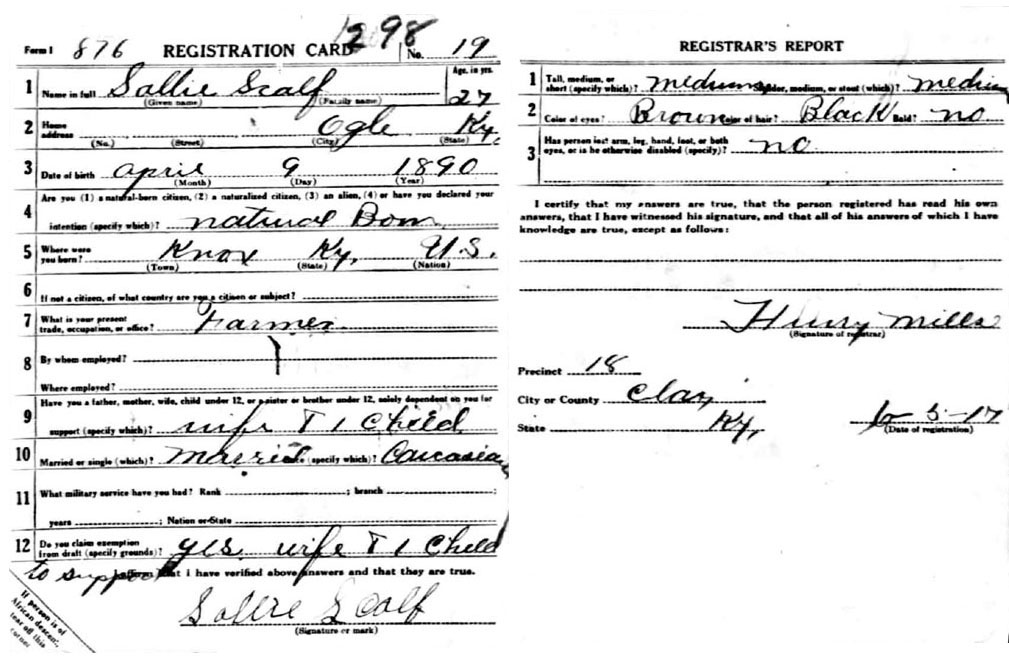 Form 1 876 REGISTRATION CARD 1298 No. 19
1 Name in full Sallie Scalf Age, in yrs. 27
(Given name) (Family name)
2 Home address Ogle Ky.
(No.) (Street) (City) (State)
3 Date of birth april 9 1890
(Month) (Day) (Year)
Are you (1) a natural-born citizen, (2) a naturalized citizen, (3) an alien, (4) or have you declared your
4 intention (specify which)? natural Born
5 Where were you born? Knox Ky, U.S.
(Town) (State) (Nation)
6 If not a citizen, of what country are you a citizen or subject?
7 What is your present trade, occupation, or office? Farmer
8 By whom employed?
Where employed?
Have you a father, mother, wife, child under 12, or a sister or brother under 12, solely dependent on you for
9 support (specify which)? wife T 1 Child
10 Married or single (which)? Married (specify which)? Caucasian
11 What military service have you had? Rank ; branch ;
years ; Nation or State
12 Do you claim exemption from draft (specify grounds)? yes. wife T 1 Child
to support I affirm that I have verified above answers and that they are true.
Sallie Scalf
(Signature or mark)
If person is of
African descent,
tear off this
corner
REGISTRAR'S REPORT
1 Tall, medium, or short (specify which)? medium Slender, medium, or stout (which)? medium
2 Color of eyes? Brown Color of hair? Black Bald? no
3 Has person lost arm, leg, hand, foot, or both eyes, or is he otherwise disabled (specify)? no
I certify that my answers are true, that the person registered has read his own
answers, that I have witnessed his signature, and that all of his answers of which I have
knowledge are true, except as follows:
Henry Mills
(Signature of registrar)
Precinct 18
City or County Clay
State Ky, 6-5-17
(Date of registration)